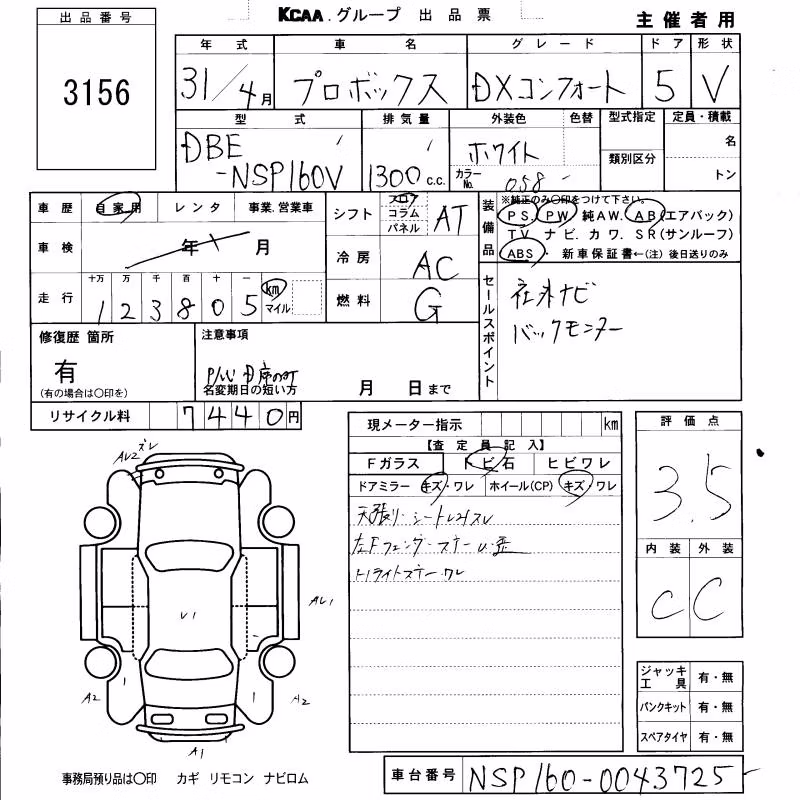 出品番号
3156
KCAA.グループ 出品票
主催者用
年式 車名 グレード ドア 形状
31/4月 プロボックス DXコンフォート 5 V
型式 排気量 外装色 色替 型式指定 定員・積載
DBE-NSP160V 1300c.c. ホワイト 名
カラーNo. 058 類別区分 トン
車歴 自家用 レンタ 事業.営業車
車検 年 月
走行 十万 万 千 百 十 一
123805 km マイル
シフト フロア コラム パネル AT
冷房 AC
燃料 G
装備品 ※純正のみ〇印をつけて下さい。
PS. PW 純AW. AB(エアバック)
TV ナビ. カワ. SR(サンルーフ)
ABS・ 新車保証書←(注) 後日送りのみ
セールスポイント
社外ナビ
バックモニター
修復歴 箇所
有
(有の場合は〇印を)
注意事項
名変期日の短い方 月 日まで
リサイクル料 7440円
現メーター指示 km
【査定員記入】
Fガラス トビ石 ヒビワレ
ドアミラー キズ・ワレ ホイール(CP) キズ・ワレ
天張り・シート
左Fフェンダーステー
ライトステー ワレ
評価点
3.5
内装 外装
C C
AU2 ズレ
V1
AU1
A2
A2
A1
ジャッキ工具 有・無
パンクキット 有・無
スペアタイヤ 有・無
事務局預り品は〇印 カギ リモコン ナビロム
車台番号 NSP160-0043725